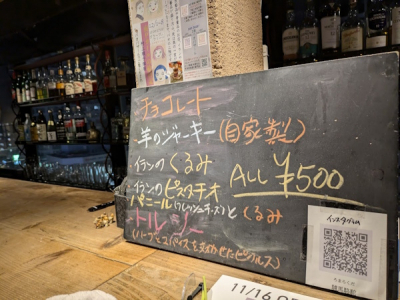 チョコレート
羊のジャーキー(自家製)
イランのくるみ
イランのピスタチオ
ALL ¥500
パニール(フレッシュチーズ)と くるみ
トルシー
(ハーブとスパイスを効かせたピクルス)
インスタグラム
11/16